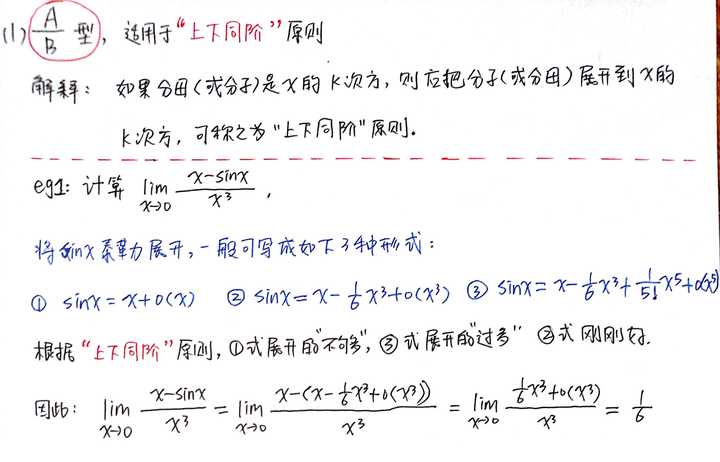 (1) A/B 型, 适用于“上下同阶”原则
解释: 如果分母(或分子)是x的k次方, 则应把分子(或分母)展开到x的
k次方, 可称之为“上下同阶”原则.
eg1: 计算 lim x→0 (x-sinx)/x³,
将sinx泰勒展开, 一般可写成如下3种形式:
① sinx = x+o(x) ② sinx = x-1/6x³+o(x³) ③ sinx = x-1/6x³+1/5!x⁵+o(x⁵)
根据“上下同阶”原则, ①式展开的“不够”, ③式展开的“过多” ②式刚刚好.
因此: lim x→0 (x-sinx)/x³ = lim x→0 (x-(x-1/6x³+o(x³)))/x³ = lim x→0 (1/6x³+o(x³))/x³ = 1/6